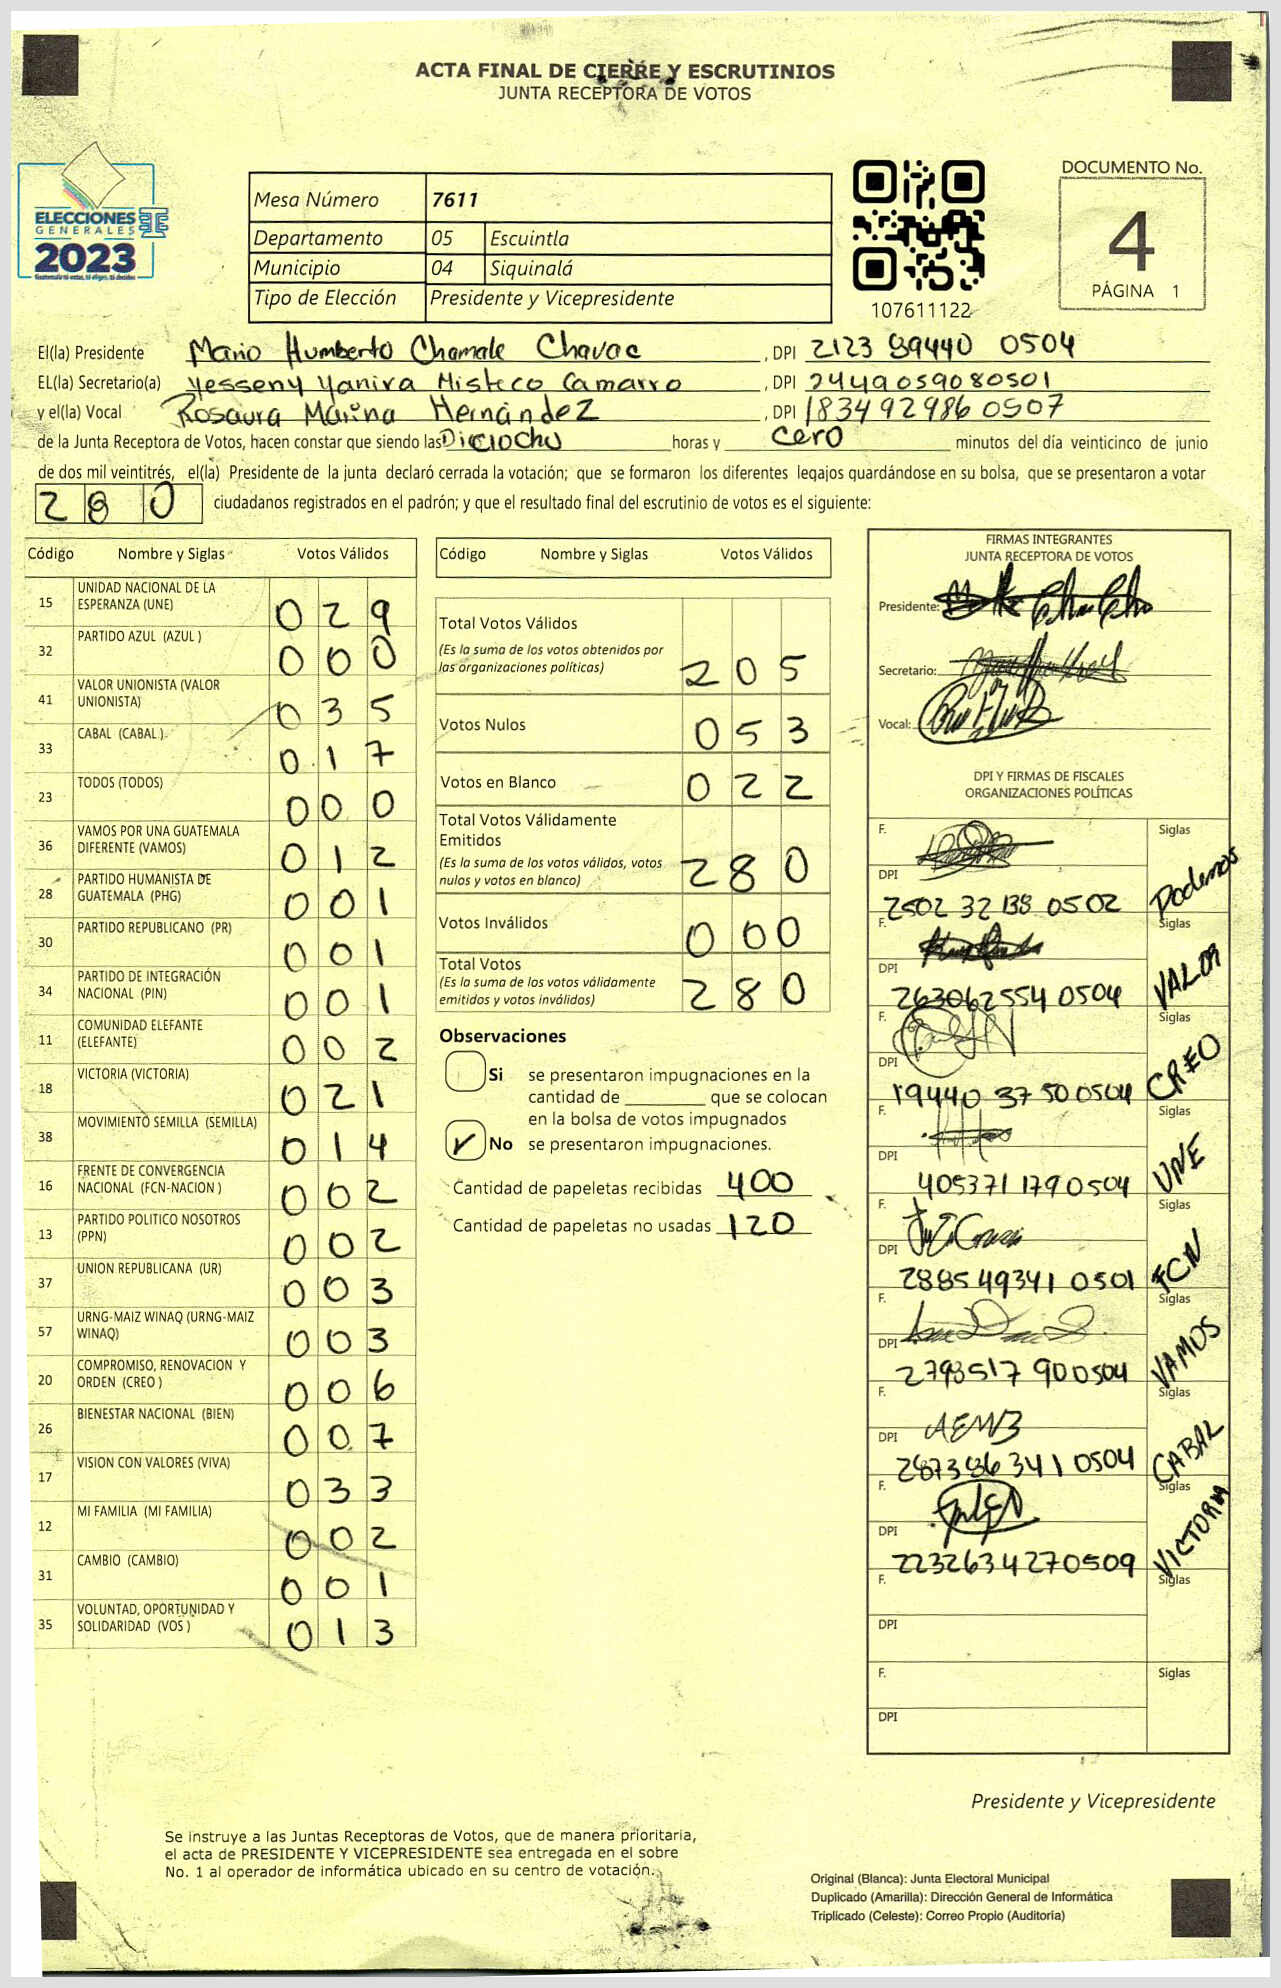 ACTA FINAL DE CIERRE Y ESCRUTINIOS
JUNTA RECEPTORA DE VOTOS
ELECCIONES
GENERALES
2023
Mesa Número 7611
Departamento 05 Escuintla
Municipio 04 Siquinalá
Tipo de Elección Presidente y Vicepresidente
107611122
DOCUMENTO No.
4
PÁGINA 1
El(la) Presidente Mario Humberto Chamale Chavac, DPI 2123 89440 0504
EL(la) Secretario(a) Yesseny Yanira Misteco Camarro, DPI 2449059080501
y el(la) Vocal Rosaura Marina Hernández, DPI 1834929860507
de la Junta Receptora de Votos, hacen constar que siendo las Dieciocho horas y cero minutos del día veinticinco de junio
de dos mil veintitrés, el(la) Presidente de la junta declaró cerrada la votación; que se formaron los diferentes legajos quardándose en su bolsa, que se presentaron a votar
280 ciudadanos registrados en el padrón; y que el resultado final del escrutinio de votos es el siguiente:
Código Nombre y Siglas Votos Válidos
15 UNIDAD NACIONAL DE LA ESPERANZA (UNE) 029
32 PARTIDO AZUL (AZUL ) 000
41 VALOR UNIONISTA (VALOR UNIONISTA) 035
33 CABAL (CABAL ) 017
23 TODOS (TODOS) 000
36 VAMOS POR UNA GUATEMALA DIFERENTE (VAMOS) 012
28 PARTIDO HUMANISTA DE GUATEMALA (PHG) 001
30 PARTIDO REPUBLICANO (PR) 001
34 PARTIDO DE INTEGRACIÓN NACIONAL (PIN) 001
11 COMUNIDAD ELEFANTE (ELEFANTE) 002
18 VICTORIA (VICTORIA) 021
38 MOVIMIENTO SEMILLA (SEMILLA) 014
16 FRENTE DE CONVERGENCIA NACIONAL (FCN-NACION ) 002
13 PARTIDO POLITICO NOSOTROS (PPN) 002
37 UNION REPUBLICANA (UR) 003
57 URNG-MAIZ WINAQ (URNG-MAIZ WINAQ) 003
20 COMPROMISO, RENOVACION Y ORDEN (CREO ) 006
26 BIENESTAR NACIONAL (BIEN) 007
17 VISION CON VALORES (VIVA) 033
12 MI FAMILIA (MI FAMILIA) 002
31 CAMBIO (CAMBIO) 001
35 VOLUNTAD, OPORTUNIDAD Y SOLIDARIDAD (VOS ) 013
Código Nombre y Siglas Votos Válidos
Total Votos Válidos
(Es la suma de los votos obtenidos por
las organizaciones políticas) 205
Votos Nulos 053
Votos en Blanco 022
Total Votos Válidamente
Emitidos
(Es la suma de los votos válidos, votos
nulos y votos en blanco) 280
Votos Inválidos 000
Total Votos
(Es la suma de los votos válidamente
emitidos y votos inválidos) 280
Observaciones
Si se presentaron impugnaciones en la
cantidad de ________ que se colocan
en la bolsa de votos impugnados
✓ No se presentaron impugnaciones.
Cantidad de papeletas recibidas 400
Cantidad de papeletas no usadas 120
FIRMAS INTEGRANTES
JUNTA RECEPTORA DE VOTOS
Presidente:
Secretario:
Vocal:
DPI Y FIRMAS DE FISCALES
ORGANIZACIONES POLÍTICAS
F. Siglas
DPI 2502 32 138 0502 Podemos
F. Siglas
DPI 263062554 0504 VALOR
F. Siglas
DPI 19440 37 50 0504 CREO
F. Siglas
DPI 405371 179 0504 UNE
F. Siglas
DPI 288549341 0501 FCN
F. Siglas
DPI 2793517 900504 VAMOS
F. AEMB Siglas
DPI 287386341 0504 CABAL
F. Siglas
DPI 2232634270509 VICTORIA
F. Siglas
DPI
F. Siglas
DPI
Presidente y Vicepresidente
Se instruye a las Juntas Receptoras de Votos, que de manera prioritaria,
el acta de PRESIDENTE Y VICEPRESIDENTE sea entregada en el sobre
No. 1 al operador de informática ubicado en su centro de votación.
Original (Blanca): Junta Electoral Municipal
Duplicado (Amarilla): Dirección General de Informática
Triplicado (Celeste): Correo Propio (Auditoría)